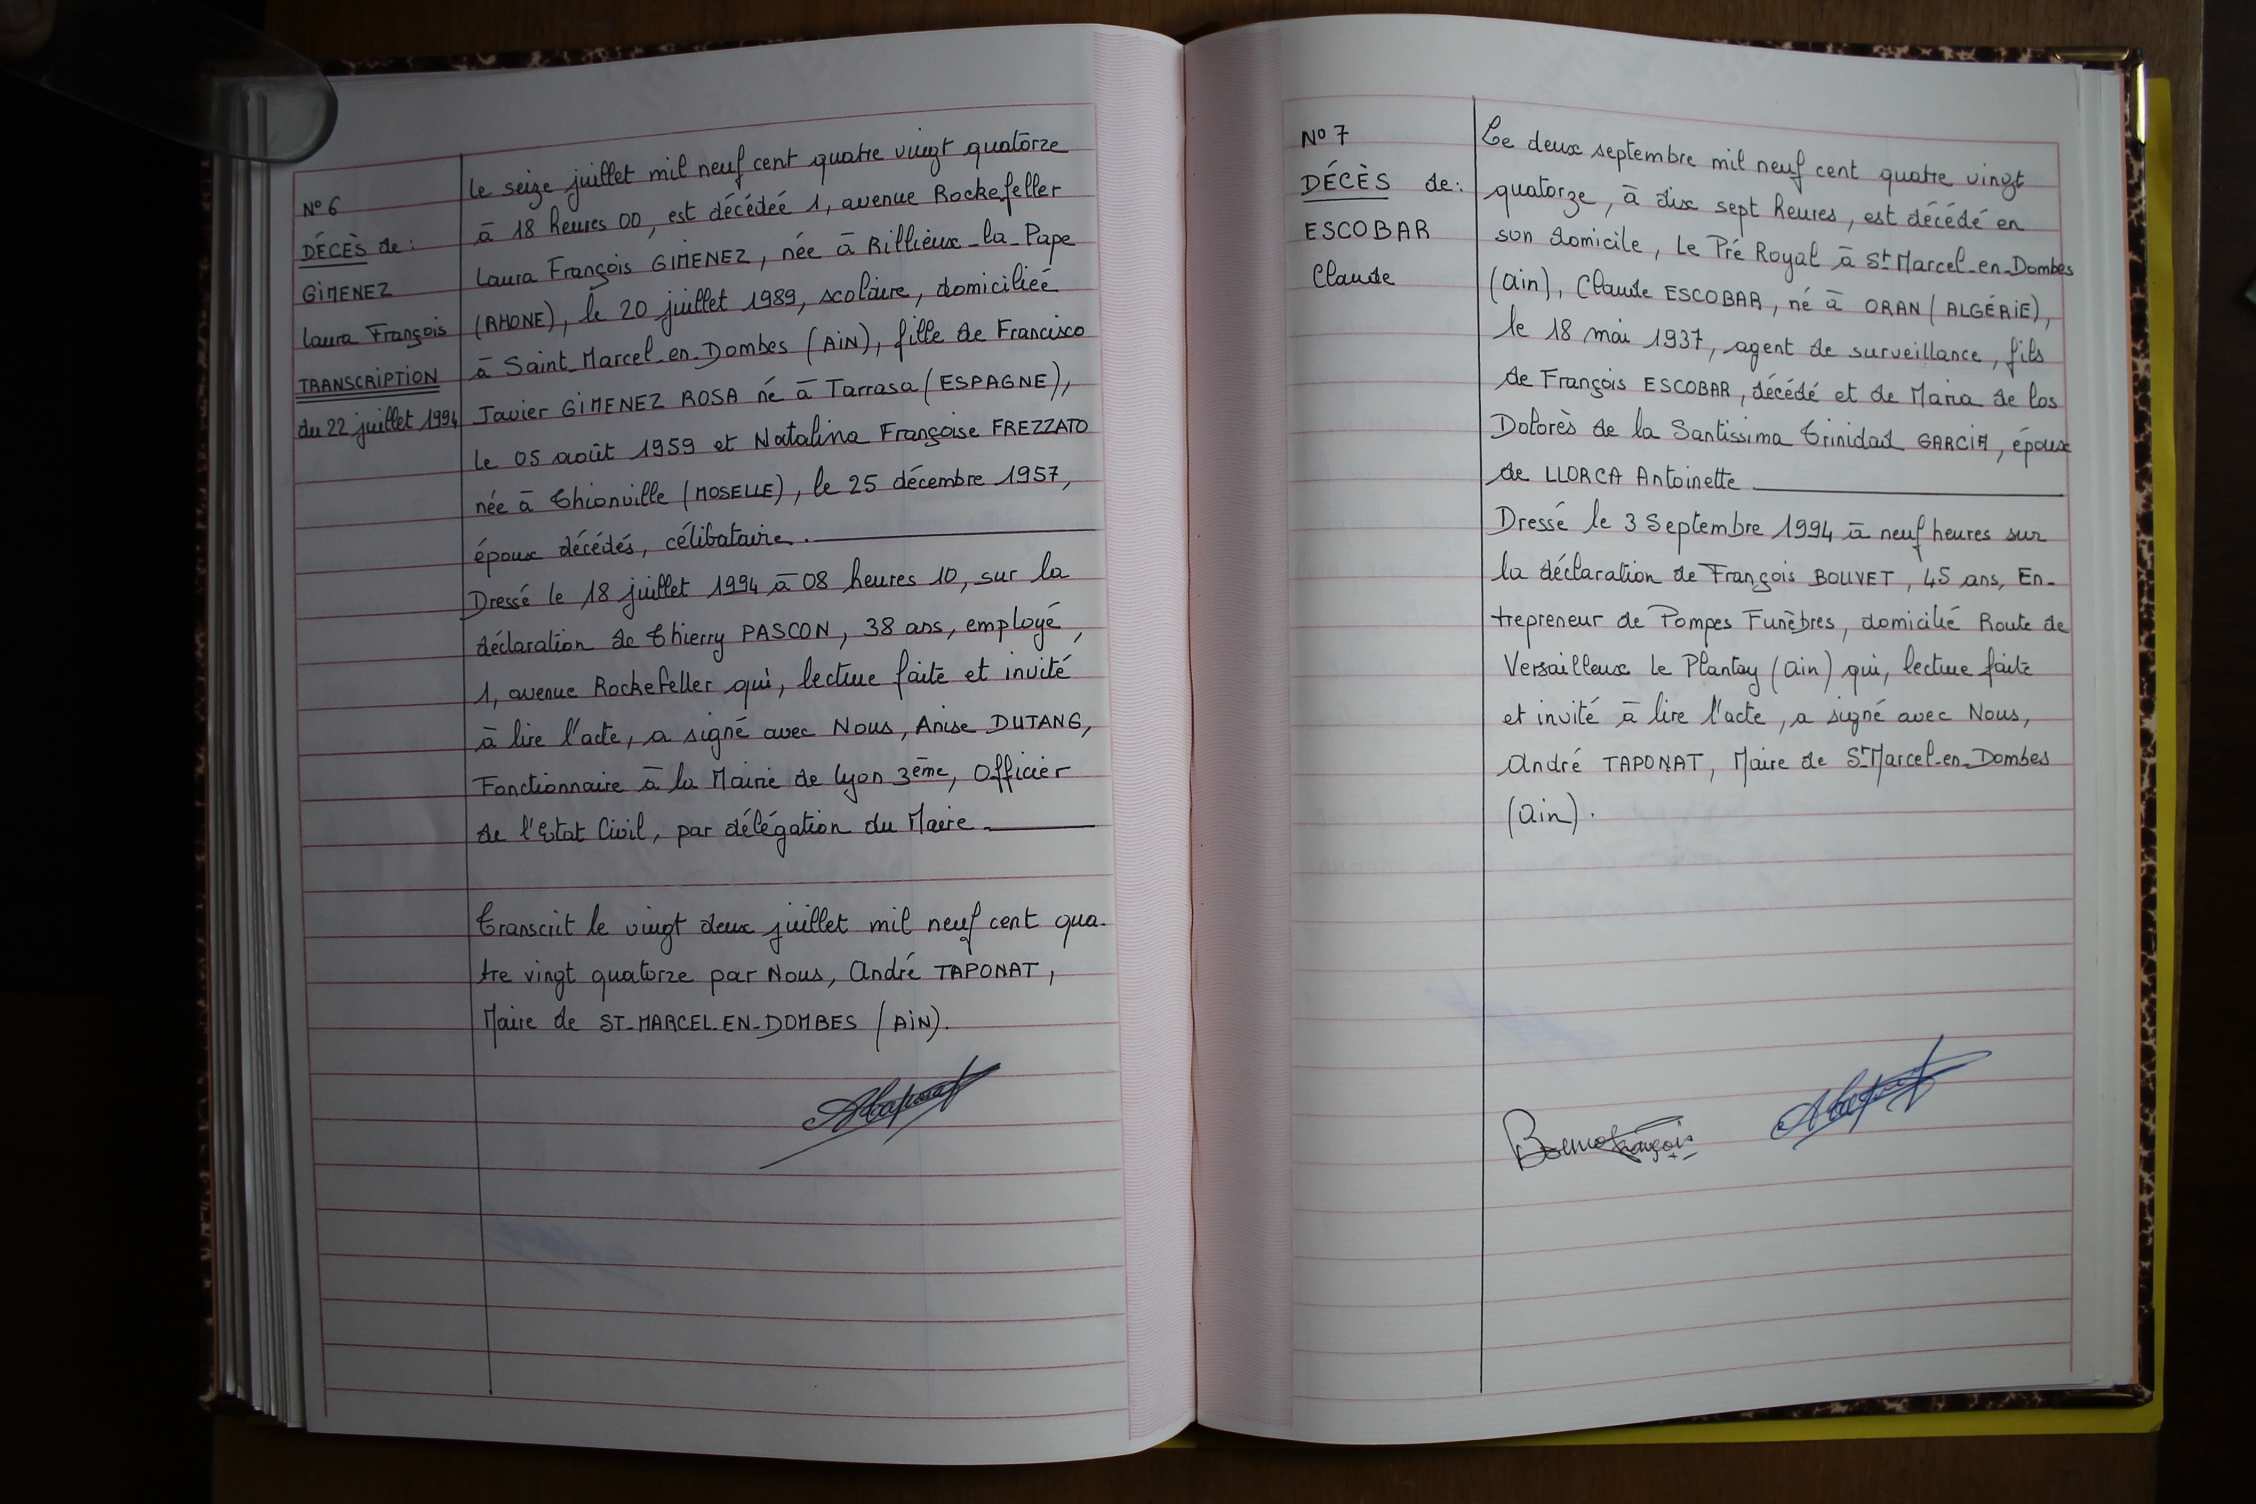 N° 6
DÉCÈS de :
GIMENEZ
Laura François
TRANSCRIPTION
du 22 juillet 1994
Le seize juillet mil neuf cent quatre vingt quatorze
à 18 heures 00, est décédeé 1, avenue Rockefeller
Laura François GIMENEZ, née à Rillieux-la-Pape
(RHONE), le 20 juillet 1989, scolaire, domicilieé
à Saint-Marcel-en-Dombes (AIN), fille de Francisco
Javier GIMENEZ ROSA né à Tarrasa (ESPAGNE),
le 05 août 1959 et Natalina Françoise FREZZATO
née à Thionville (MOSELLE), le 25 décembre 1957,
époux décédés, célibataire.
Dressé le 18 juillet 1994 à 08 heures 10, sur la
déclaration de Thierry PASCON, 38 ans, employé,
1, avenue Rockefeller qui, lecture faite et invité
à lire l'acte, a signé avec Nous, Anise DUTANG,
Fonctionnaire à la Mairie de Lyon 3ème, Officier
de l'Etat Civil, par délégation du Maire
Transcrit le vingt deux juillet mil neuf cent qua-
tre vingt quatorze par Nous, André TAPONAT,
Maire de ST-MARCEL-EN-DOMBES (AIN).
N° 7
DÉCÈS de :
ESCOBAR
Claude
Le deux septembre mil neuf cent quatre vingt
quatorze, à dix sept heures, est décédé en
son domicile, Le Pré Royal à St Marcel-en-Dombes
(Ain), Claude ESCOBAR, né à ORAN (ALGÉRIE),
le 18 mai 1937, agent de surveillance, fils
de François ESCOBAR, décédé et de Maria de los
Dolorès de la Santissima Trinidad GARCIA, époux
de LLORCA Antoinette
Dressé le 3 Septembre 1994 à neuf heures sur
la déclaration de François BOUVET, 45 ans, En-
trepreneur de Pompes Funèbres, domicilié Route de
Versailleux Le Plantay (Ain) qui, lecture faite
et invité à lire l'acte, a signé avec Nous,
André TAPONAT, Maire de St-Marcel-en-Dombes
(Ain).